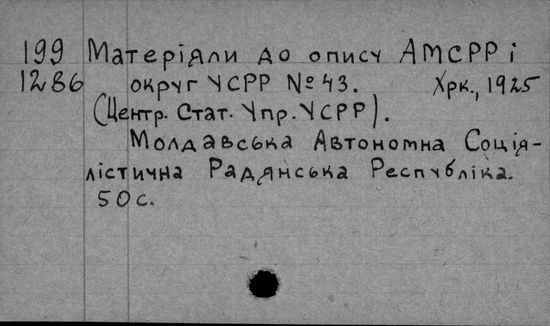 199 Матеріяли до опису АМСРР і
1286 округ УСРР № 43. Хрк., 1925
(Центр. Стат. Упр. УСРР).
Молдавська Автономна Соція-
лістична Радянська Республіка.
50с.